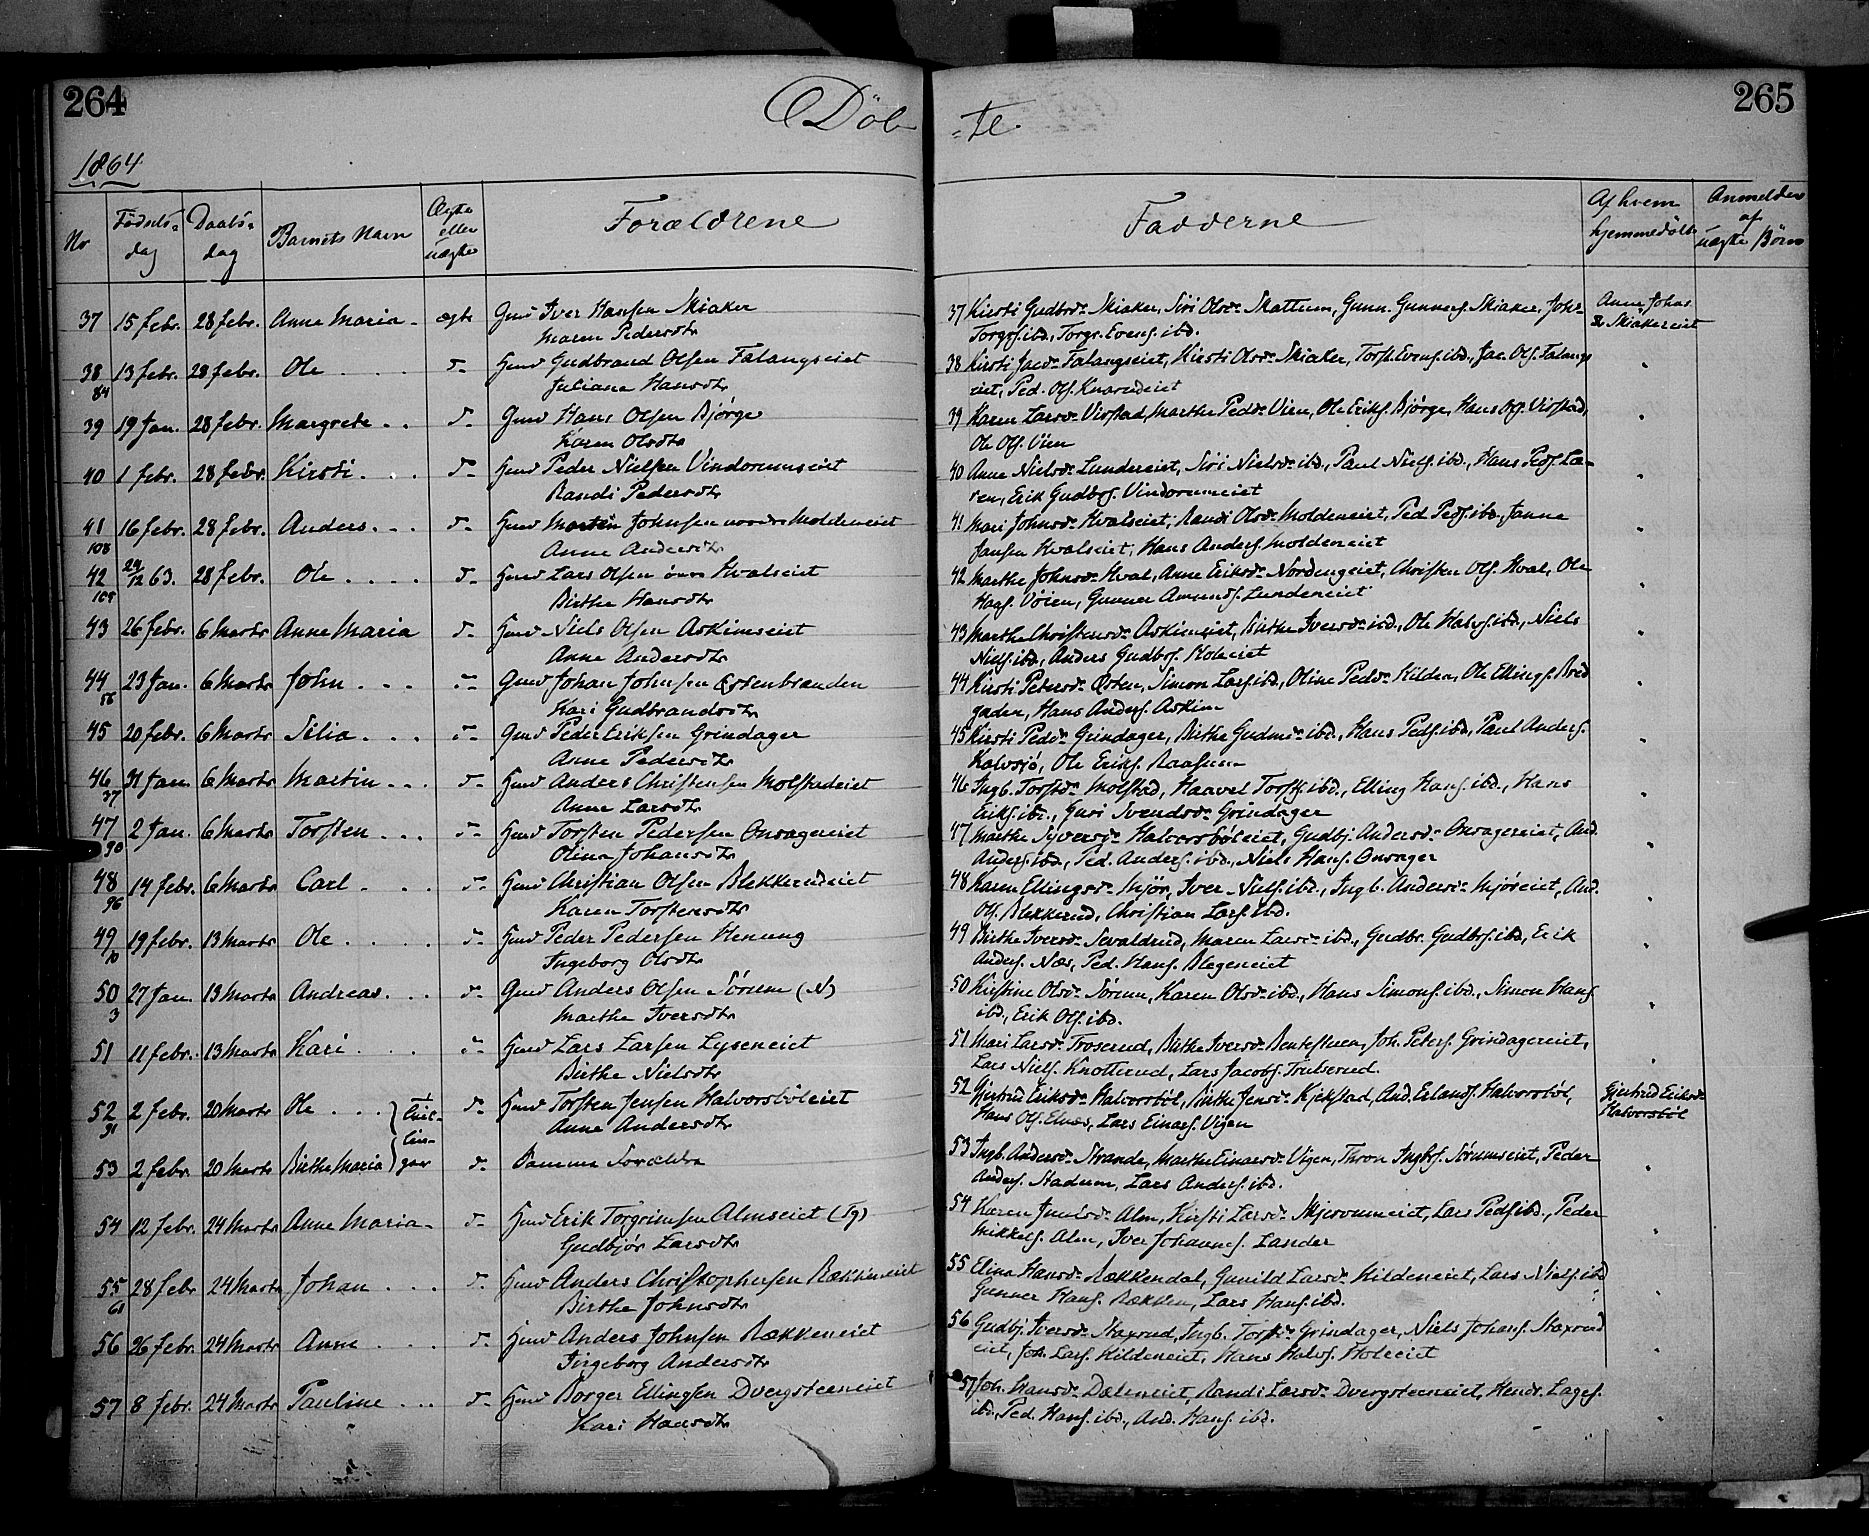 264
Døb
1864
No
Fødsels=
dag
Daabs=
dag
Barnets Navn
Ægte
eller
uægte
Forældrene
37 15 febr. 28 febr. Anne Maria - ægte Gmd Iver Hansen Skiaker
Maren Pedersdtr
38 13 febr. 28 febr. Ole . . . . d- Hmd Gudbrand Olsen Falangseiet
84 Juliane Hansdtr
39 19 Jan. 28 febr. Margrete . . d- Gmd Hans Olsen Bjørge
Karen Olsdtr
40 1 febr. 28 febr. Kirsti . . . d- Hmd Peder Nielsen Vindorumseiet
Randi Pedersdtr
41 16 febr. 28 febr. Anders . . . d- Hmd Martin Johnsen nordre Moldeneiet
108 Anne Andersdtr
42 29/12 63. 28 febr. Ole . . . . d- Hmd Lars Olsen Hvalseiet
109 Birthe Hansdtr
43 26 febr. 6 Marts Anne Maria d- Hmd Niels Olsen Askimseiet
Anne Andersdtr
44 23 Jan. 6 Marts John . . . d- Gmd Johan Johnsen Østenbraaden
56 Kari Gudbrandsdtr
45 20 febr. 6 Marts Silia . . . d- Gmd Peder Eriksen Grindager
Anne Pedersdtr
46 31 Jan. 6 Marts Martin . . . d- Hmd Anders Christensen Molstadeiet
37 Anne Larsdtr
47 2 Jan. 6 Marts Torsten . . . d- Hmd Torsten Pedersen Onsagereiet
90 Olina Johansdtr
48 14 febr. 6 Marts Carl . . . d- Hmd Christian Olsen Blekkerudeiet
96 Karen Torstensdtr
49 19 febr. 13 Marts Ole . . . . d- Hmd Peder Pedersen Henung
10 Ingeborg Olsdtr
50 27 Jan. 13 Marts Andreas . . . d- Gmd Anders Olsen Sørum (N)
3 Marthe Iversdtr
51 11 febr. 13 Marts Kari . . . d- Hmd Lars Larsen Lyseneiet
Birthe Nielsdtr
52 2 febr. 20 Marts Ole . . . } Tvil- d- Hmd Torsten Jensen Halvorsbøleiet
91 lin- Anne Andersdtr
53 2 febr. 20 Marts Birthe Maria } ger d- Samme Forældre
54 12 febr. 24 Marts Anne Maria - d- Hmd Erik Torgrimsen Almseiet (Tg)
Gudbjør Larsdtr
55 28 febr 24 Marts Johan . . . d- Hmd Anders Christophersen Rækkeneiet
61 Birthe Johnsdtr
56 26 febr. 24 Marts Anne . . . d- Hmd Anders Johnsen Rækkeneiet
Ingeborg Andersdtr
57 8 febr. 24 Marts Pauline . . . d- Hmd Borger Ellingsen Dvergsteeneiet
Kari Hansdtr
265
=te
Fadderne
Af hvem
hjemmedøbt
Anmelder
af
uægte Børn
37 Kirsti Gudbrd- Skiaker, Siri Olsd- Skattum, Gunn. Gunners. Skiaker, Joh- Anne Johns
Torgs. ibd., Torgr. Evens. ibd. Skiakereiet
38 Kirsti Jacd- Falangseiet, Kirsti Olsd- Skiaker, Torst. Evens. ibd., Jac. Ols. Falangs
eiet, Ped. Ols. Knarudeiet
39 Karen Larsd- Virstad, Marthe Pedd- Vien, Ole Eriks. Bjørge, Hans Ols. Virstad,
Ole Ols. Vien
40 Anne Nielsd- Lundereiet, Siri Nielsd- ibd., Paul Niels. ibd., Hans Peds. Læ-
ren, Erik Gudbrs. Vindorumeiet
41 Mari Johnsd- Hvalseiet, Randi Olsd- Moldeneiet, Ped. Peds. ibd., Janne
Jansen Hvalseiet, Hans Anders. Moldeneiet
42 Marthe Johnsd- Hval, Anne Eriksd- Nordengeiet, Christen Ols. Hval, Ole
Haags. Vøien, Gunner Amunds. Lundeneiet
43 Marthe Christensd- Askimeiet, Birthe Iversd- ibd., Ole Halvs. ibd., Niels
Niels. ibd., Anders Gudbrs. Holeeiet
44 Kirsti Petersd- Østen, Simon Lars. ibd., Oline Pedd- Hilden, Ole Ellings. Bred
gaden, Hans Anders. Askim
45 Kirsti Pedd- Grindager, Birthe Gudmd- ibd., Hans Peds. ibd., Paul Anders.
Kalvsjø, Ole Eriks. Raassum
46 Ingb. Torstd- Molstad, Haavel Torsts. ibd., Elling Hans. ibd., Hans
Eriks. ibd., Guri Svendsd- Grindager
47 Marthe Syversd- Halvorsbøleiet, Gudbj. Andersd- Onsagereiet, And.
Anders. ibd., Ped. Anders. ibd., Niels Hans. Onsager
48 Karen Ellingsd- Mjør, Iver Niels. ibd., Ingb. Andersd- Mjøreiet, And.
Ols. Blekkerud, Christian Lars. ibd.
49 Birthe Iversd- Sevaldrud, Maren Larsd- ibd., Gudbr. Gudbrs. ibd., Erik
Anders. Næs, Ped. Hans. Blegeneiet
50 Kristine Olsd- Sørum, Karen Olsd- ibd., Hans Simons. ibd., Simon Hans.
ibd., Erik Ols. ibd.
51 Mari Larsd- Troserud, Birthe Iversd- Bentestuen, Joh. Peters. Grindagereiet,
Lars Niels. Knotterud, Lars Jacobs. Trulserud.
52 Gjertrud Eriksd- Halvorsbøl, Birthe Jensd- Kjekstad, And. Erlands. Halvorsbøl, Gjertrud Eriksd-
Hans Ols. Elnæs, Lars Einars. Vigen Halvorsbøl
53 Ingb. Andersd- Strande, Marthe Einarsd- Vigen, Thron Ingbrs. Sørumseiet, Peder
Anders. Hadum, Lars Anders. ibd.
54 Karen Juulsd- Alm, Kirsti Larsd- Skjervumeiet, Lars Peds. ibd., Peder
Mikkels. Alm, Iver Johannes. Lander
55 Elina Hansd- Rækkendal, Gunild Larsd- Hildeneiet, Lars Niels. ibd
Gunner Hans. Rækken, Lars Hans. ibd.
56 Gudbj. Iversd- Staxrud, Ingb. Torstd- Grindager, Niels Johans. Staxrud
eiet, Joh. Lars. Hildeneiet, Hans Halvs. Holeeiet
57 Joh. Hansd- Dæleneiet, Randi Larsd- Dvergsteeneiet, Hendr. Lages.
ibd., Ped. Hans. ibd., And. Hans. ibd.